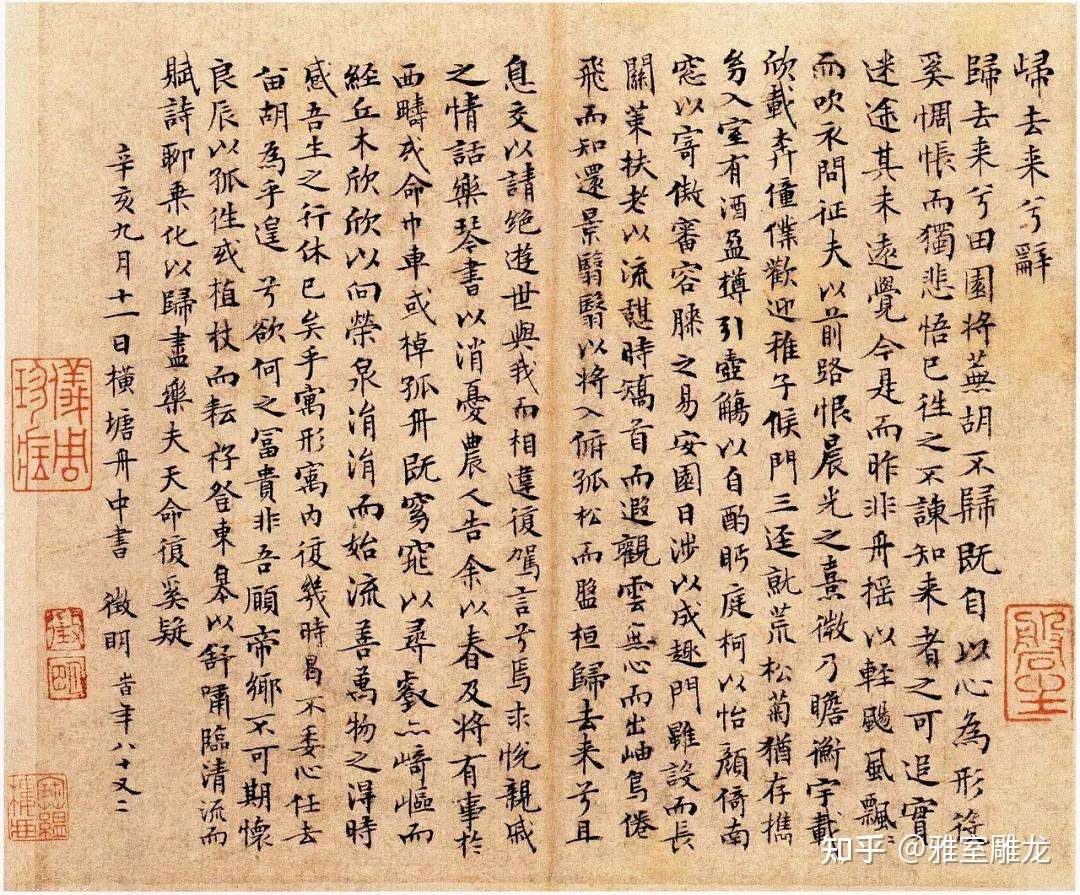 歸去来兮辭
歸去来兮田園将蕪胡不歸既自以心為形役
奚惆悵而獨悲悟已往之不諫知来者之可追實
迷途其未遠覺今是而昨非舟揺以輕颺風飄〻
而吹衣問征夫以前路恨晨光之熹微乃瞻衡宇載
欣載奔僮僕歡迎稚子候門三逕就荒松菊猶存攜
㓜入室有酒盈樽引壺觴以自酌眄庭柯以怡顔倚南
窓以寄傲審容膝之易安園日涉以成趣門雖設而長
關策扶老以流憩時矯首而遐觀雲無心而出岫鳥倦
飛而知還景翳翳以将入孤松而盤桓歸去来兮且
息交以請絶遊世與我而相違復駕言兮焉求悅親戚
之情話樂琴書以消憂農人告余以春及将有事於
西疇或命巾車或棹孤舟既窈窕以尋壑亦崎嶇而
經丘木欣欣以向榮泉涓涓而始流善萬物之得時
感吾生之行休已矣乎寓形寓内復幾時曷不委心任去
留胡為乎遑兮欲何之富貴非吾願帝鄉不可期懷
良辰以孤往或植杖而耘耔登東皋以舒嘯臨清流而
賦詩聊乗化以歸盡樂夫天命復奚疑
辛亥九月十一日横塘舟中書 徵明 旹年八十又二
徵明
儀周珍藏
知乎 @雅室雕龙